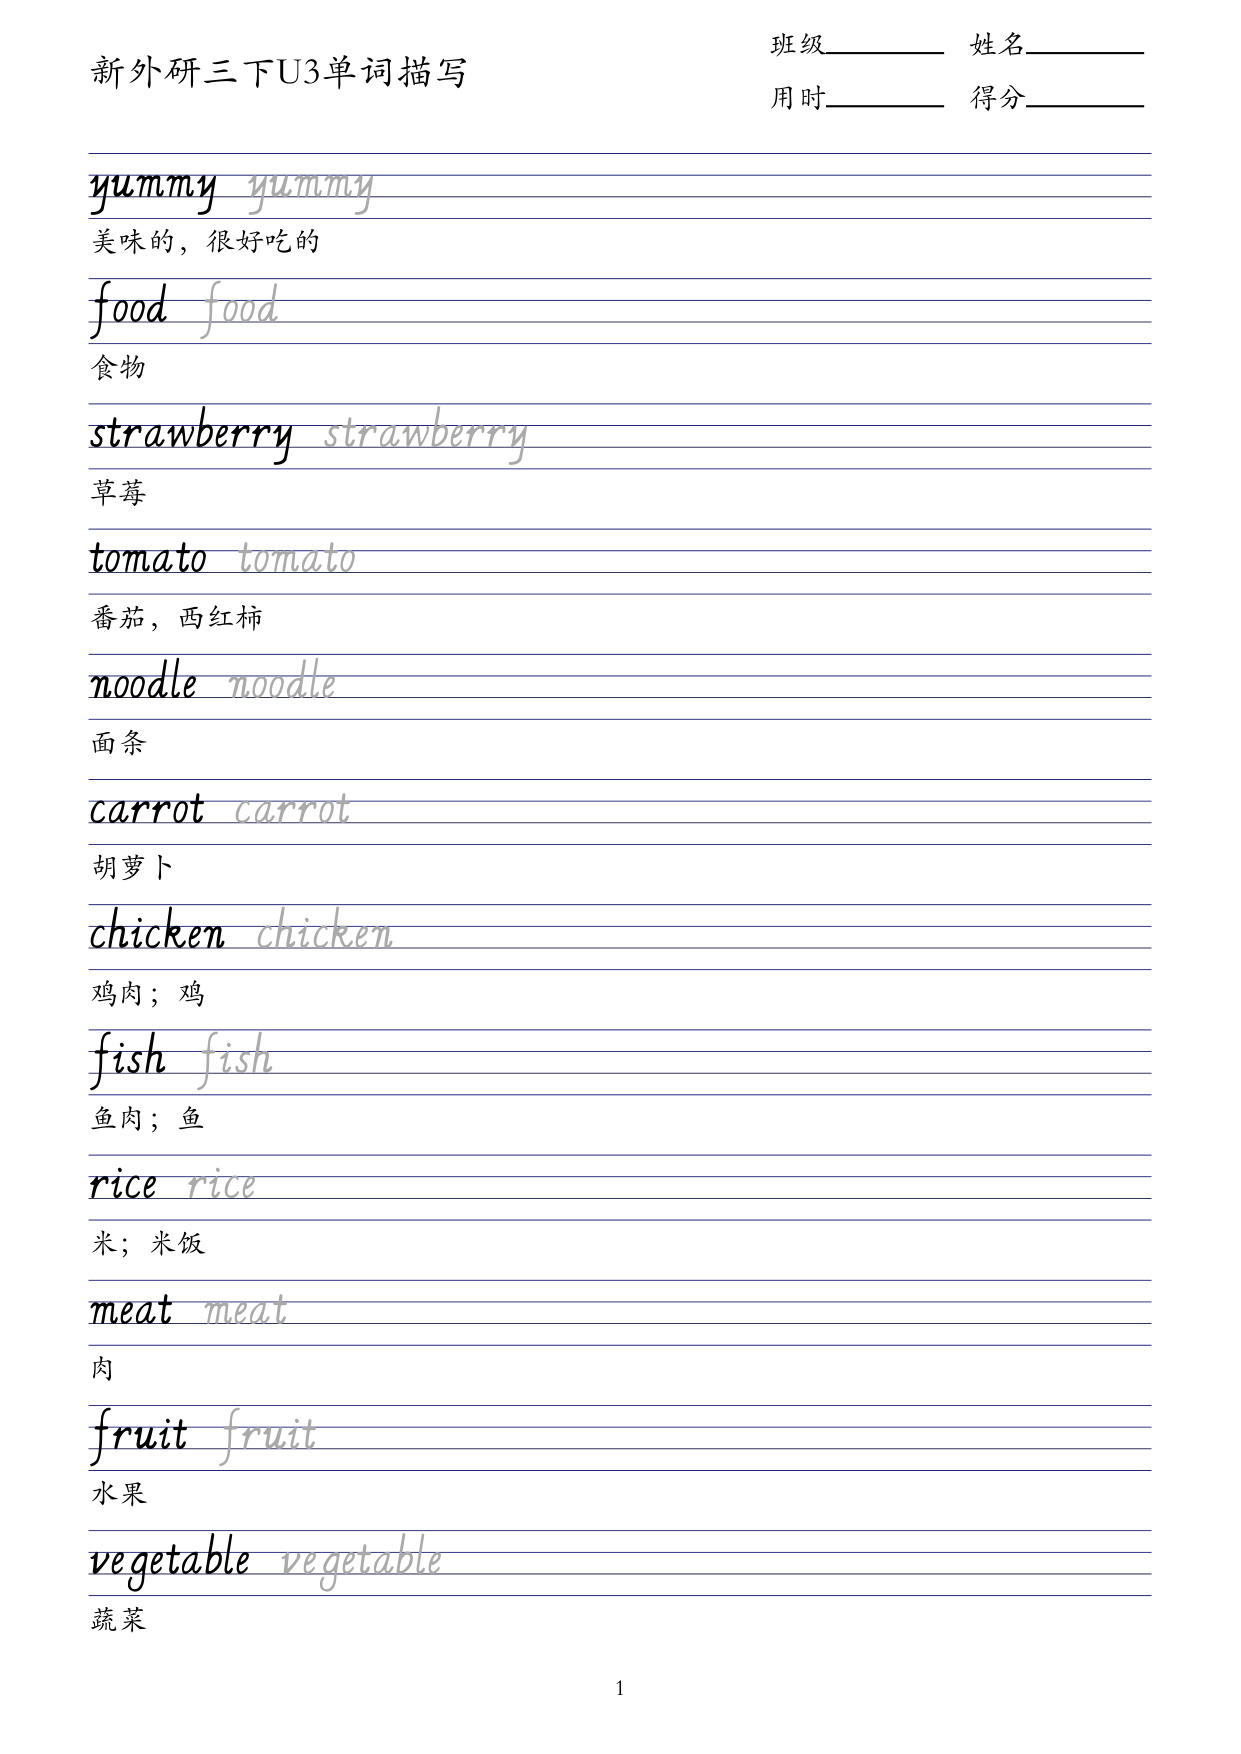 班级________ 姓名________
新外研三下U3单词描写
用时________ 得分________
yummy yummy
美味的，很好吃的
food food
食物
strawberry strawberry
草莓
tomato tomato
番茄，西红柿
noodle noodle
面条
carrot carrot
胡萝卜
chicken chicken
鸡肉；鸡
fish fish
鱼肉；鱼
rice rice
米；米饭
meat meat
肉
fruit fruit
水果
vegetable vegetable
蔬菜
1